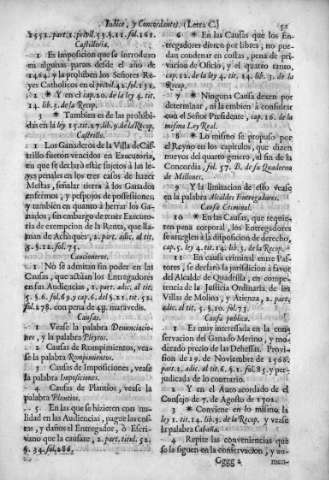 Indice, y Concordantes. (Letra C.)
1553. part. 2. privil. 33. §. 12. fol. 261.
Castilleria.
1 Es Imposicion que se introduxo
en algunas partes desde el año de
1464. y la prohiben los Señores Re-
yes Catholicos en el privil. 42. fol. 131.
2 * Y en el cap. 2. de la ley 4. tit.
14. lib. 3. de la Recop.
3 * Tambien es de las prohibi-
das en la ley 15. tit. 27. lib. 9. de la Recop.
Castrillo.
1 Los Ganaderos de la Villa de Cas-
trillo fueron vencidos en Executoria,
en que se declarò estàr sujetos à las le-
yes penales en los tres casos de hazer
Mestas, señalar tierra à los Ganados
enfermos, y despojos de possessiones,
y tambien en quanto à herrar los Ga-
nados, sin embargo de tener Executo-
ria de exempcion de la Renta, que lla-
man de Achaques, 2. part. adic. al tit.
3. §. 12. fol. 75.
Cauciones.
1 No se admitan sin poder en las
Causas, que actùan los Entregadores
en sus Audiencias, 1. part. adic. al tit.
5. §. 6. fol. 89. y cap. 6. del §. 21. tit. 52.
fol. 278. con pena de 4y. maravedis.
Causas.
1 Vease la palabra Denunciacio-
nes, y la palabra Pleytos.
2 Causas de Rompimientos, vea-
se la palabra Rompimientos.
3 Causas de Imposiciones, vease
la palabra Imposiciones.
4 Causas de Plantios, vease la
palabra Plantios.
5 En las que se hizieren con nu-
lidad en las Audiencias, pague las cos-
tas, y daños el Entregador, ò Escri-
vano que la causare, 2. part. titul. 52.
§. 34. fol. 286.
6 * En las Causas que los En-
tregadores dieren por libres, no pue-
dan condenar en costas, pena de pri-
vacion de Oficio, y el quatro tanto,
cap. 12. de la ley 4. tit. 14. lib. 3. de la
Recop.
7 * Ninguna Causa dexen por
determinar, ni la embien à consultar
con el Señor Presidente, cap. 16. de la
misma Ley Real.
8 * Lo mismo se propuso por
el Reyno en los capitulos, que dizen
del quarto genero, al fin de la
Concordia, fol. 57. B. de su Quaderno
de Millones.
9 Y la limitacion de esto vease
en la palabra Alcaldes Entregadores.
Causa Criminal.
10 * En las Causas, que requie-
ren pena corporal, los Entregadores
se arreglen à la disposicion de derecho,
cap. 5. ley 4. tit. 14. lib. 3. de la Recop.
11 En causa criminal entre Pas-
tores, se declarò la jurisdicion à favor
del Alcalde de Quadrilla, en compe-
tencia de la Justicia Ordinaria de las
Villas de Molina, y Atienza, 2. part.
adic. al tit. 5. §. 10. fol. 75.
Causa publica.
1 Es muy interessada en la con-
servacion del Ganado Merino, y mo-
derado precio de las Dehessas. Provi-
sion de 29. de Noviembre de 1566.
part. 2. adic. al tit. 6. §. 1. fol. 85. y per-
judicada de lo contrario.
2 Y en el Auto acordado de el
Consejo de 7. de Agosto de 1702.
3 * Conviene en lo mismo la
ley 1. tit. 14. lib. 3. de la Recop. y vease
la palabra Cabaña.
4 Repite las conveniencias que
se la siguen en la conservacion, y au-
Gggg 2
men-